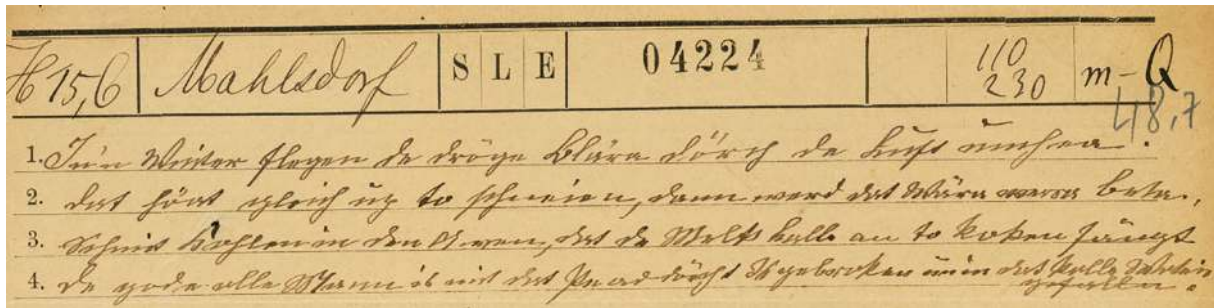 H 15,6 Mahlsdorf S L E 04224 110 230 m-Q
48,7
1. In'n Winter flegen de dröge Blära dörch de Luft umhea.
2. dat höat gleich up to schneien, dann werd dat Wära wera beta.
3. Schmiet Kohlen in den Awen, dat de Melk balle an to koken fängt
4. De gode olle Mann is mit dat Pead dörcht Is gebroken un in dat kolle Water
gefallen.